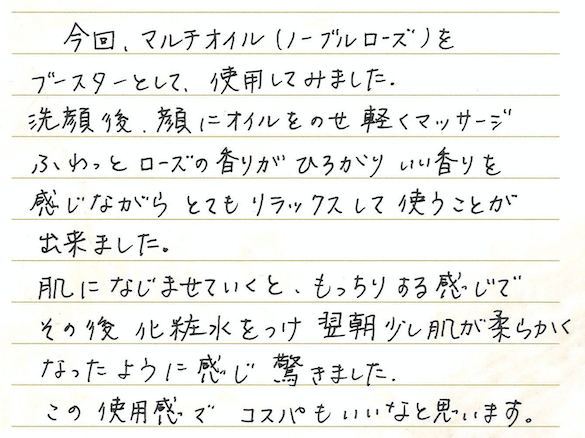 今回、マルチオイル(ノーブルローズ)を
ブースターとして、使用してみました.
洗顔後、顔にオイルをのせ 軽くマッサージ
ふわっと ローズの香りが ひろがり いい香りを
感じながら とても リラックス して 使うことが
出来ました。
肌に なじませていくと、もっちり する 感じで
その後 化粧水をつけ 翌朝 少し 肌が柔らかく
なったように 感じ 驚きました.
この 使用感で コスパも いいなと思います。